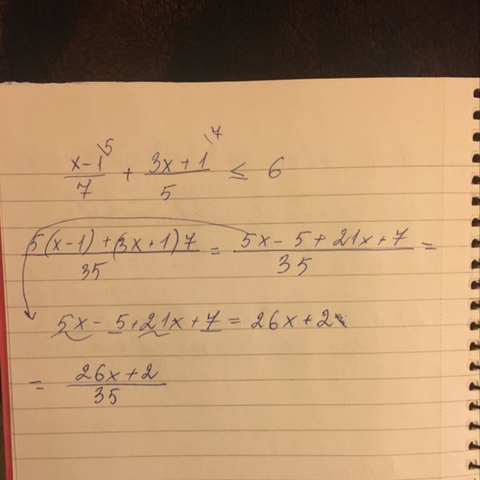 (x-1)/7 \5 + (3x+1)/5 \7 ≤ 6
(5(x-1)+(3x+1)7)/35 = (5x-5+21x+7)/35 =
5x-5+21x+7=26x+2
= (26x+2)/35